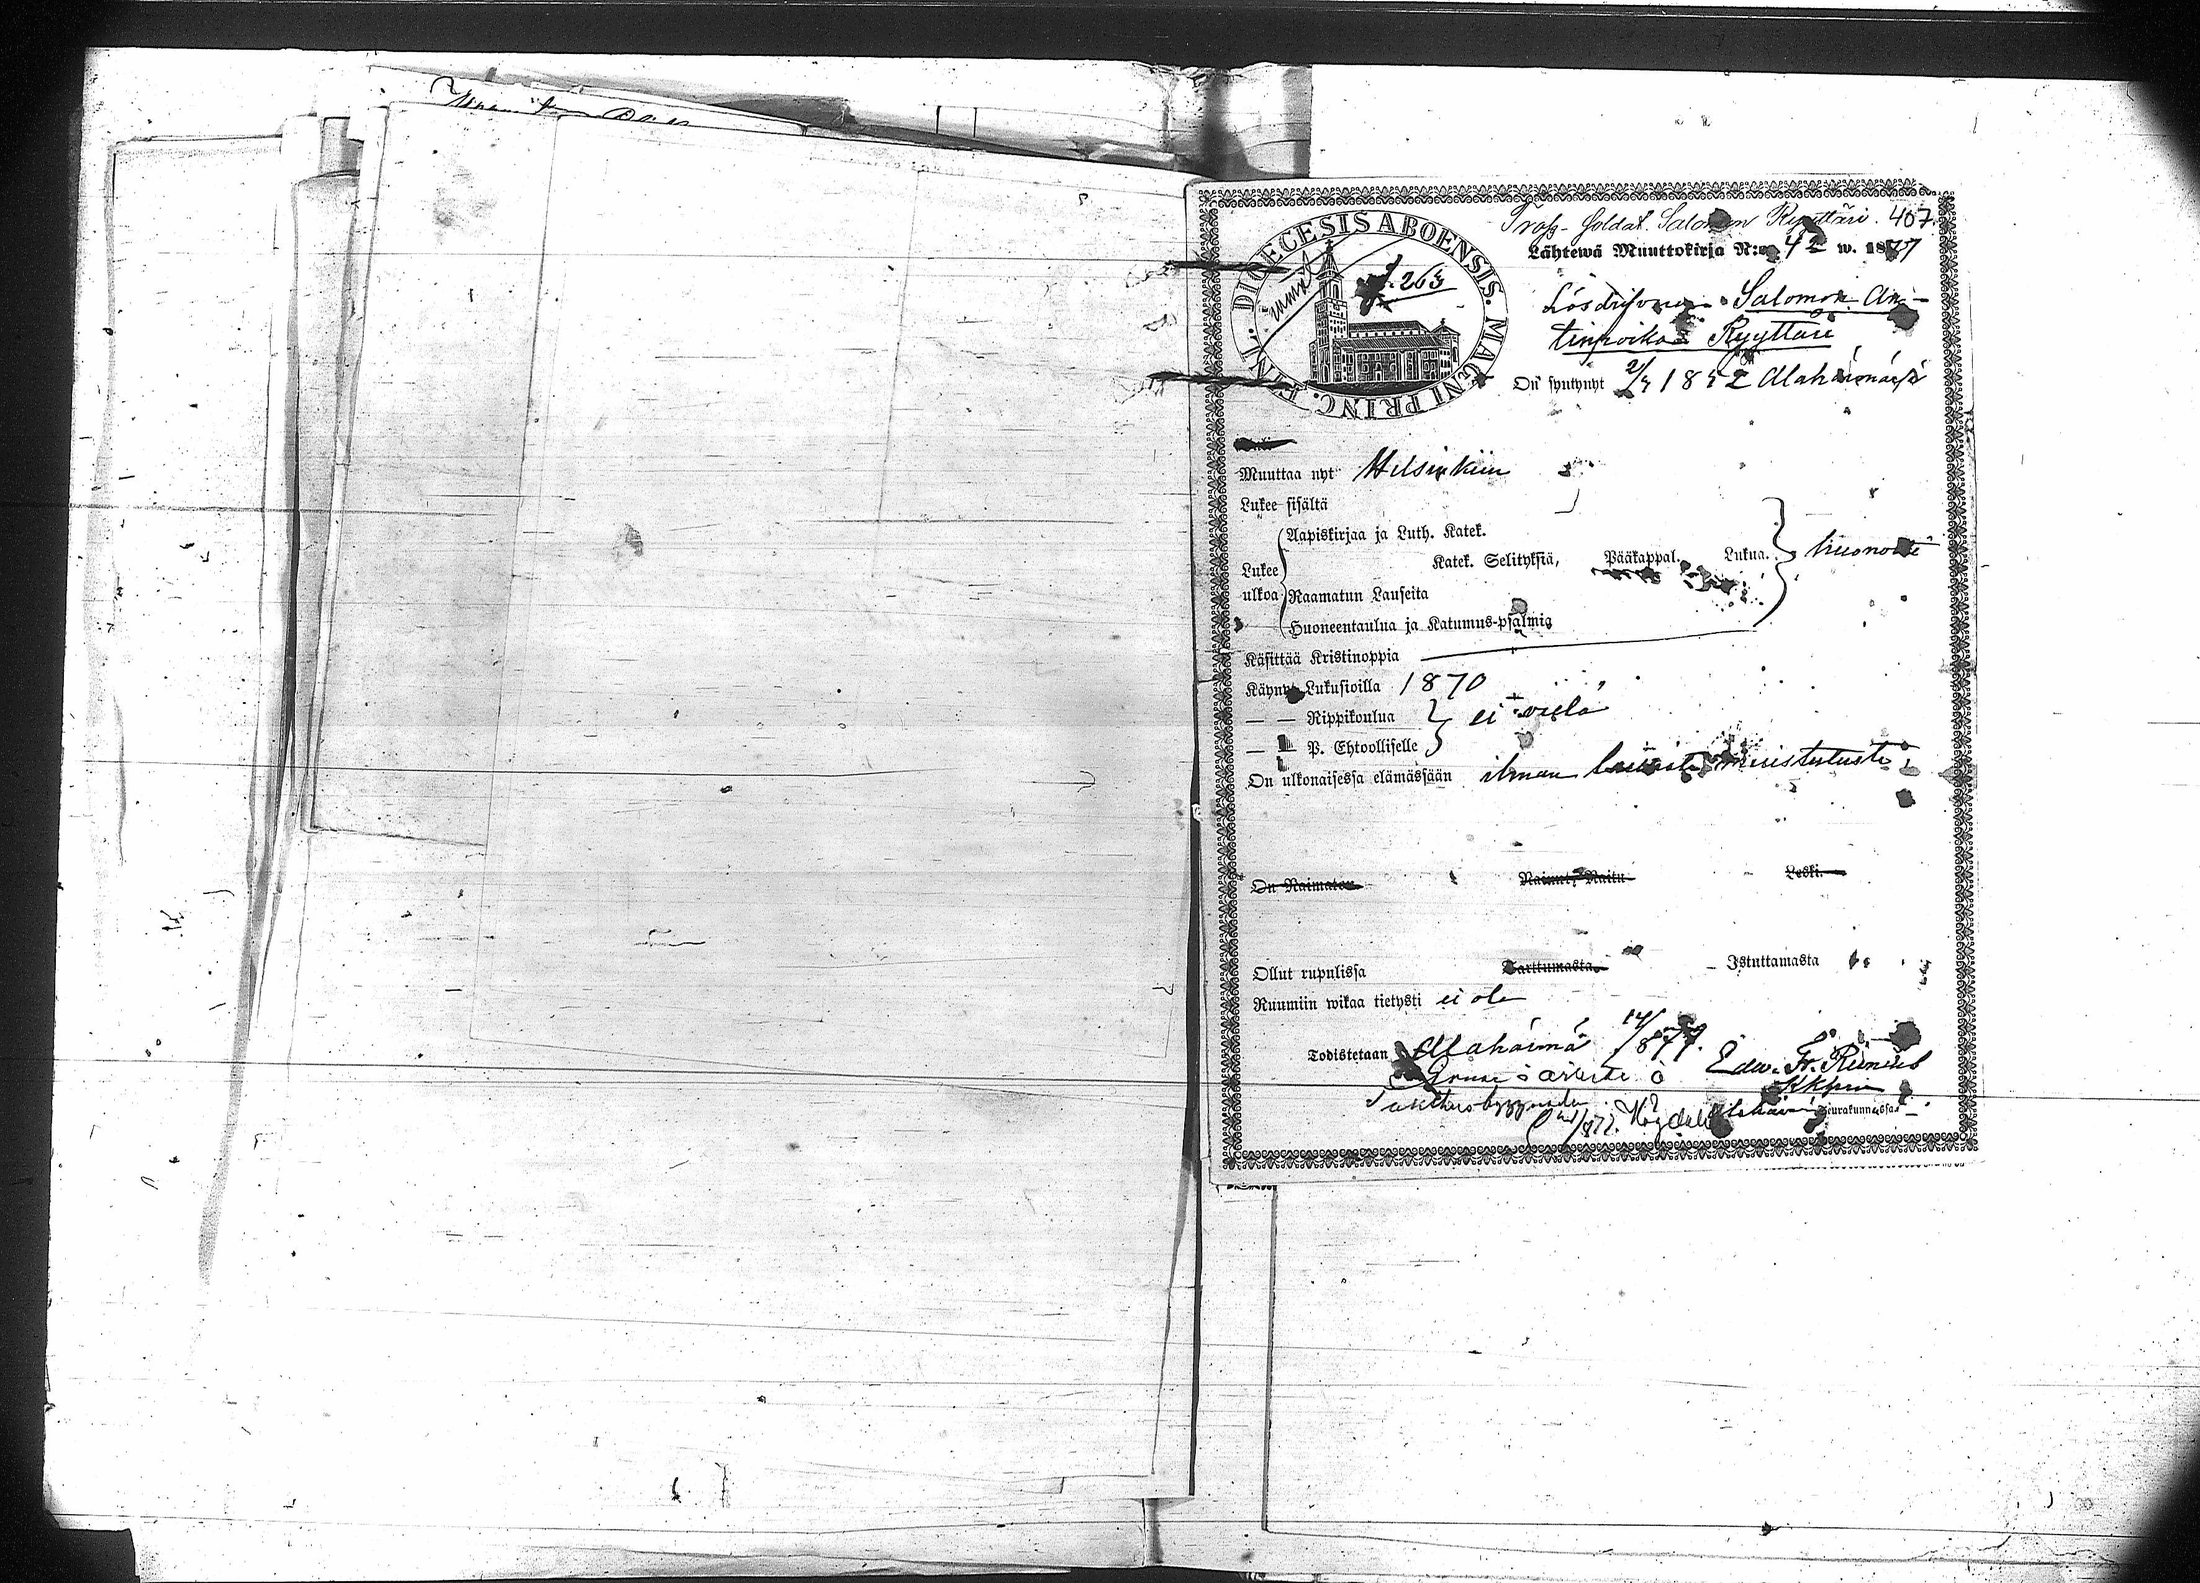 Tross-Soldat. Salomon Ryyttäri. 407.
Lähtewä Muuttokirja N:o 42 w. 1877
DIOECESIS ABOENSIS. MAGNI PRINC. FINL.
263
Lösdrifvaren Salomon An-
tinpoika Ryyttäri
On syntynyt 2/3 1852 Alahärmässä
Muuttaa nyt Helsinkiin
Lukee sisältä
Aapiskirjaa ja Luth. Katek.
Lukee ulkoa Katek. Selityksiä, Pääkappal. Lukua. huonosti
Raamatun Lauseita
Huoneentaulua ja Katumus-psalmia
Käsittää Kristinoppia
Käynyt Lukusioilla 1870
— — Rippikoulua } ei vielä
— — P. Ehtoolliselle
On ulkonaisessa elämässään ilman muistutusta
On Naimaton Nainut, Naitu Leski.
Ollut rupulissa Tarttumasta. Istuttamasta
Ruumiin wikaa tietysti ei ole
Todistetaan Alahärmä 14/ 877. Edw. Fr. Reinius
Kkpin
Alahärmä Seurakunnassa